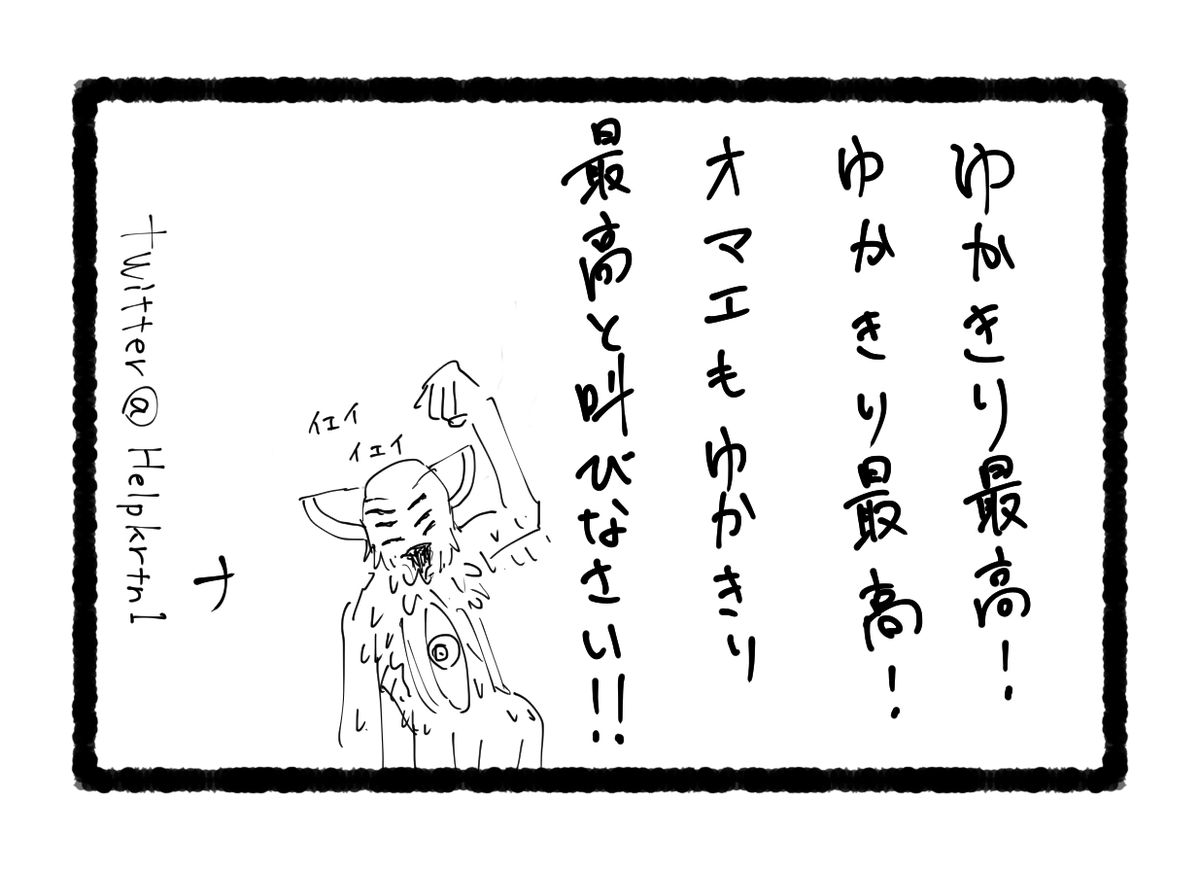 ゆかきり最高!
ゆかきり最高!
オマエもゆかきり
最高と叫びなさい!!
イエイ
イエイ
ナ
Twitter@Helpkrtn1